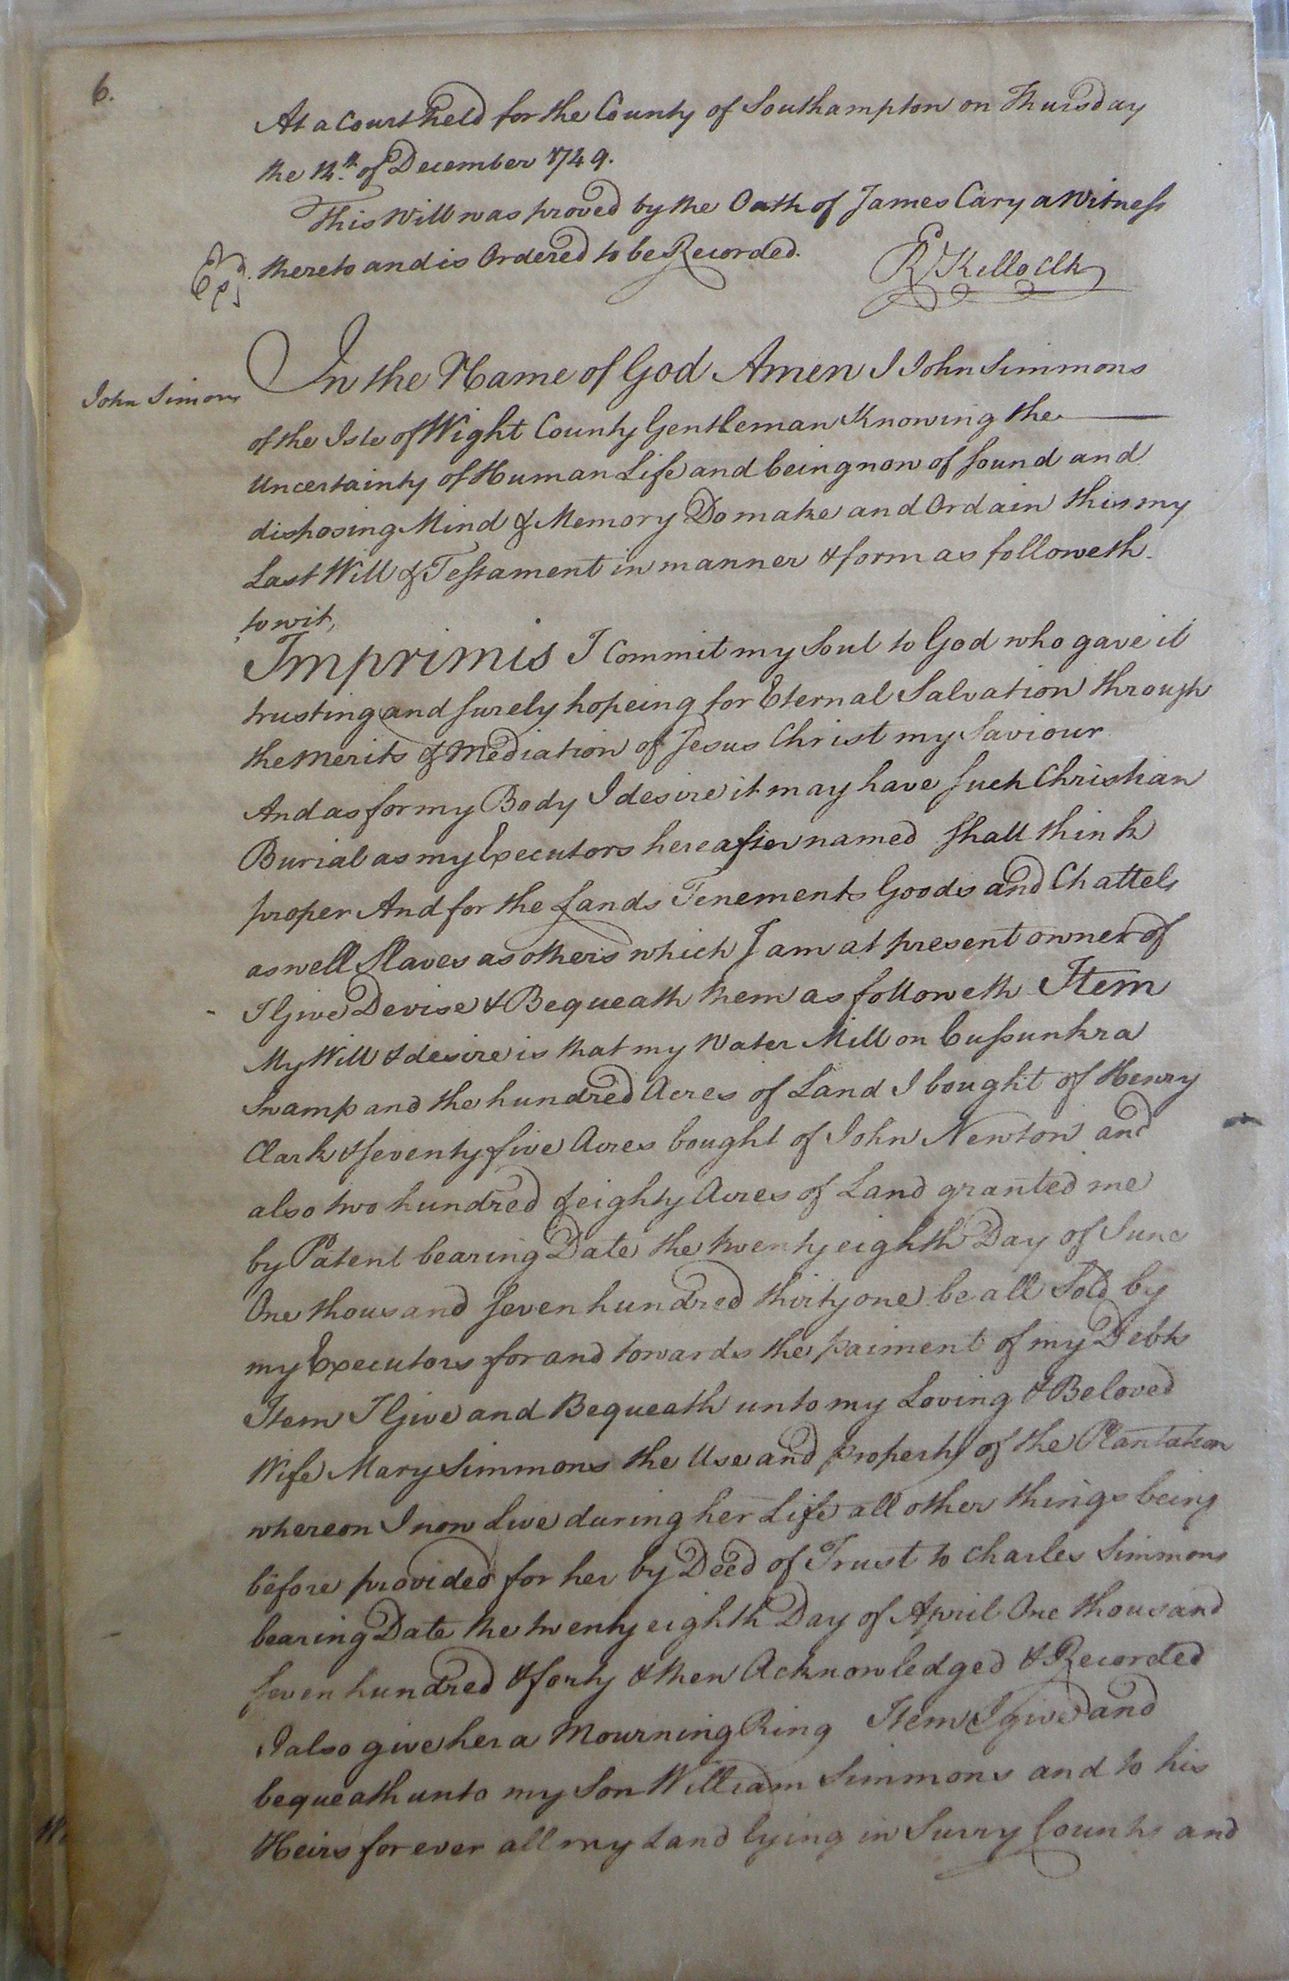 6.
At a Court held for the County of Southampton on Thursday
the 14.th of December 1749.
This Will was proved by the Oath of James Cary a Witness
Exd. thereto and is Ordered to be Recorded.
R Kello Clk
John Simons
In the Name of God Amen I John Simmons
of the Isle of Wight County Gentleman Knowing the
Uncertainty of Human Life and being now of sound and
disposing Mind & Memory Do make and Ordain this my
Last Will & Testament in manner & form as followeth
to wit,
Imprimis I Commit my Soul to God who gave it
trusting and surely hopeing for Eternal Salvation through
the Merits & Mediation of Jesus Christ my Saviour
And as for my Body I desire it may have such Christian
Burial as my Executors hereafter named shall think
proper And for the Lands Tenements Goods and Chattels
as well Slaves as others which I am at present owner of
I Give Devise & Bequeath them as followeth Item
My Will & desire is that my Water Mill on Cussunkra
Swamp and the hundred Acres of Land I bought of Henry
Clark & seventy five Acres bought of John Newton and
also two hundred & eighty Acres of Land granted me
by Patent bearing Date the twenty eighth Day of June
One thousand seven hundred thirty one be all Sold by
my Executors for and towards the paiment of my Debts
Item I Give and Bequeath unto my Loving & Beloved
Wife Mary Simmons the Use and property of the Plantation
whereon I now Live during her Life all other things being
before provided for her by Deed of Trust to Charles Simmons
bearing Date the twenty eighth Day of April One thousand
seven hundred & forty & then Acknowledged & Recorded
I also give her a Mourning Ring Item I give and
bequeath unto my Son William Simmons and to his
Heirs for ever all my Land lying in Surry County and